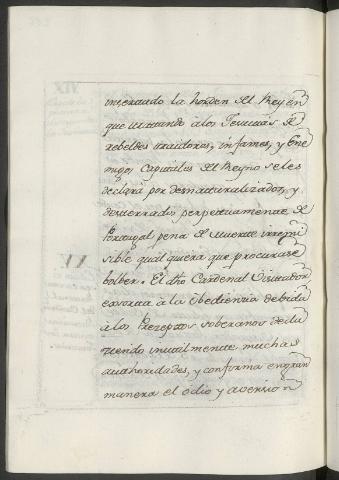 insertando la horden del Rey en
que tratando à los Jesuitas de
rebeldes traidores, infames, y Ene
migos Capitales del Reyno se les
declara por desnaturalizados, y
desterrados perpetuamente de
Portugal pena de Muerte irremi
sible qual quiera que procurase
bolber. El dho Cardenal Visitador
exorta à la Obediencia debida
à los Preceptos Soberanos dedu
ciendo inutilmente muchas
authoridades, y conforma en gran
manera el odio y aversion